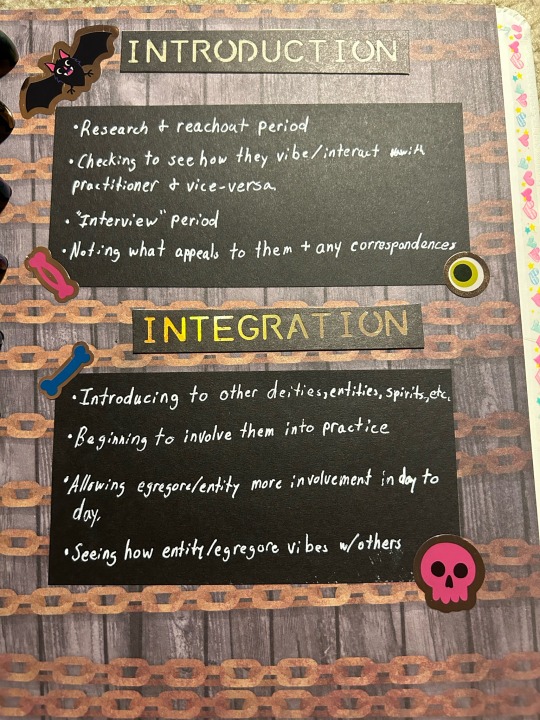 INTRODUCTION
•Research & reachout period
•Checking to see how they vibe/interact with
practitioner & vice-versa.
•"Interview" period
•Noting what appeals to them + any correspondences
INTEGRATION
•Introducing to other deities, entities, spirits, etc.
•Beginning to involve them into practice
•Allowing egregore/entity more involvement in day to
day.
•Seeing how entity/egregore vibes w/others